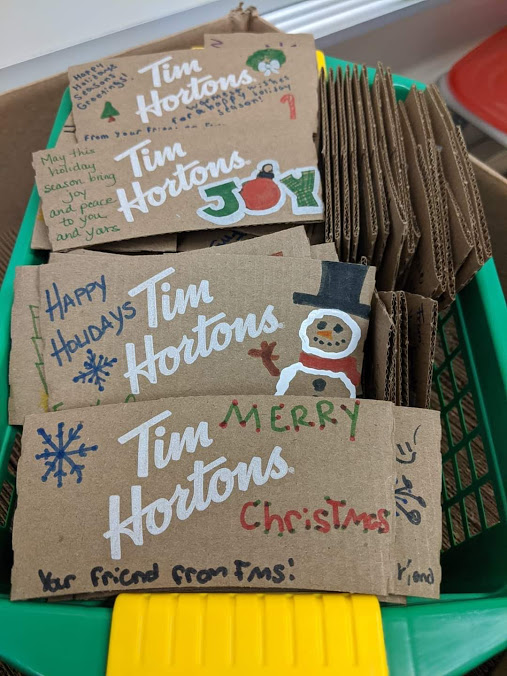 Happy
Holidays
Seasons
Greetings!
Tim
Hortons
for a happy holiday
season!
From your Friend
May this
holiday
season bring
joy
and peace
to you
and yars
Tim
Hortons
JOY
HAPPY
HOLIDAYS
Tim
Hortons
MERRY
Tim
Hortons
Christmas
Your Friend from FMS!